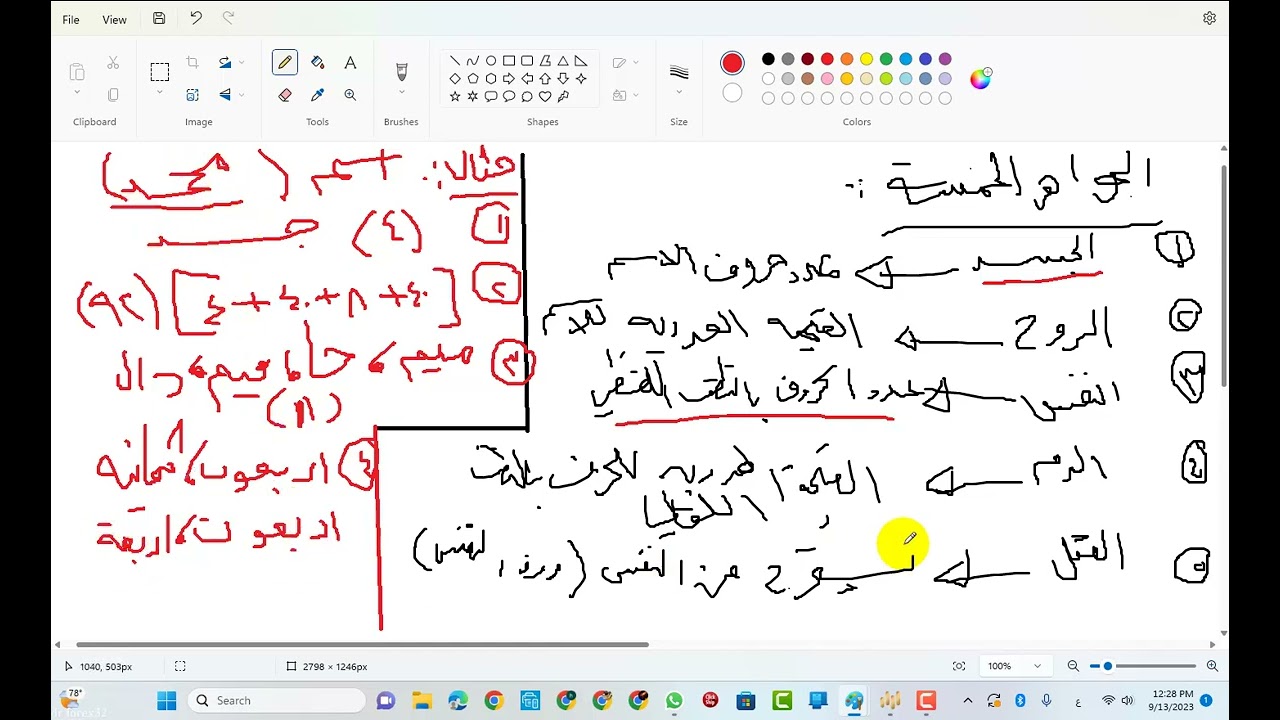 File View
Clipboard
Image
Tools
Brushes
Shapes
Size
Colors
الجواهر الخمسة :-
١ الجسد ← عدد حروف الاسم
٢ الروح ← القيمة العددية للاسم
٣ النفس ← عدد الحروف بالتلفظ اللفظي
٤ الدم ←
٥ العقل ← من النفس
مثال :. اسم (محمد)
١ (٤) جسد
٢ [٤٠ + ٨ + ٤٠ + ٤] (٩٢)
٣ ميم، حا، ميم، دال
(١١)
٤ اربعون، ثمانيه
اربعون، اربعة
1040, 503px
2798 × 1246px
100%
78°
Search
ع
12:28 PM
9/13/2023